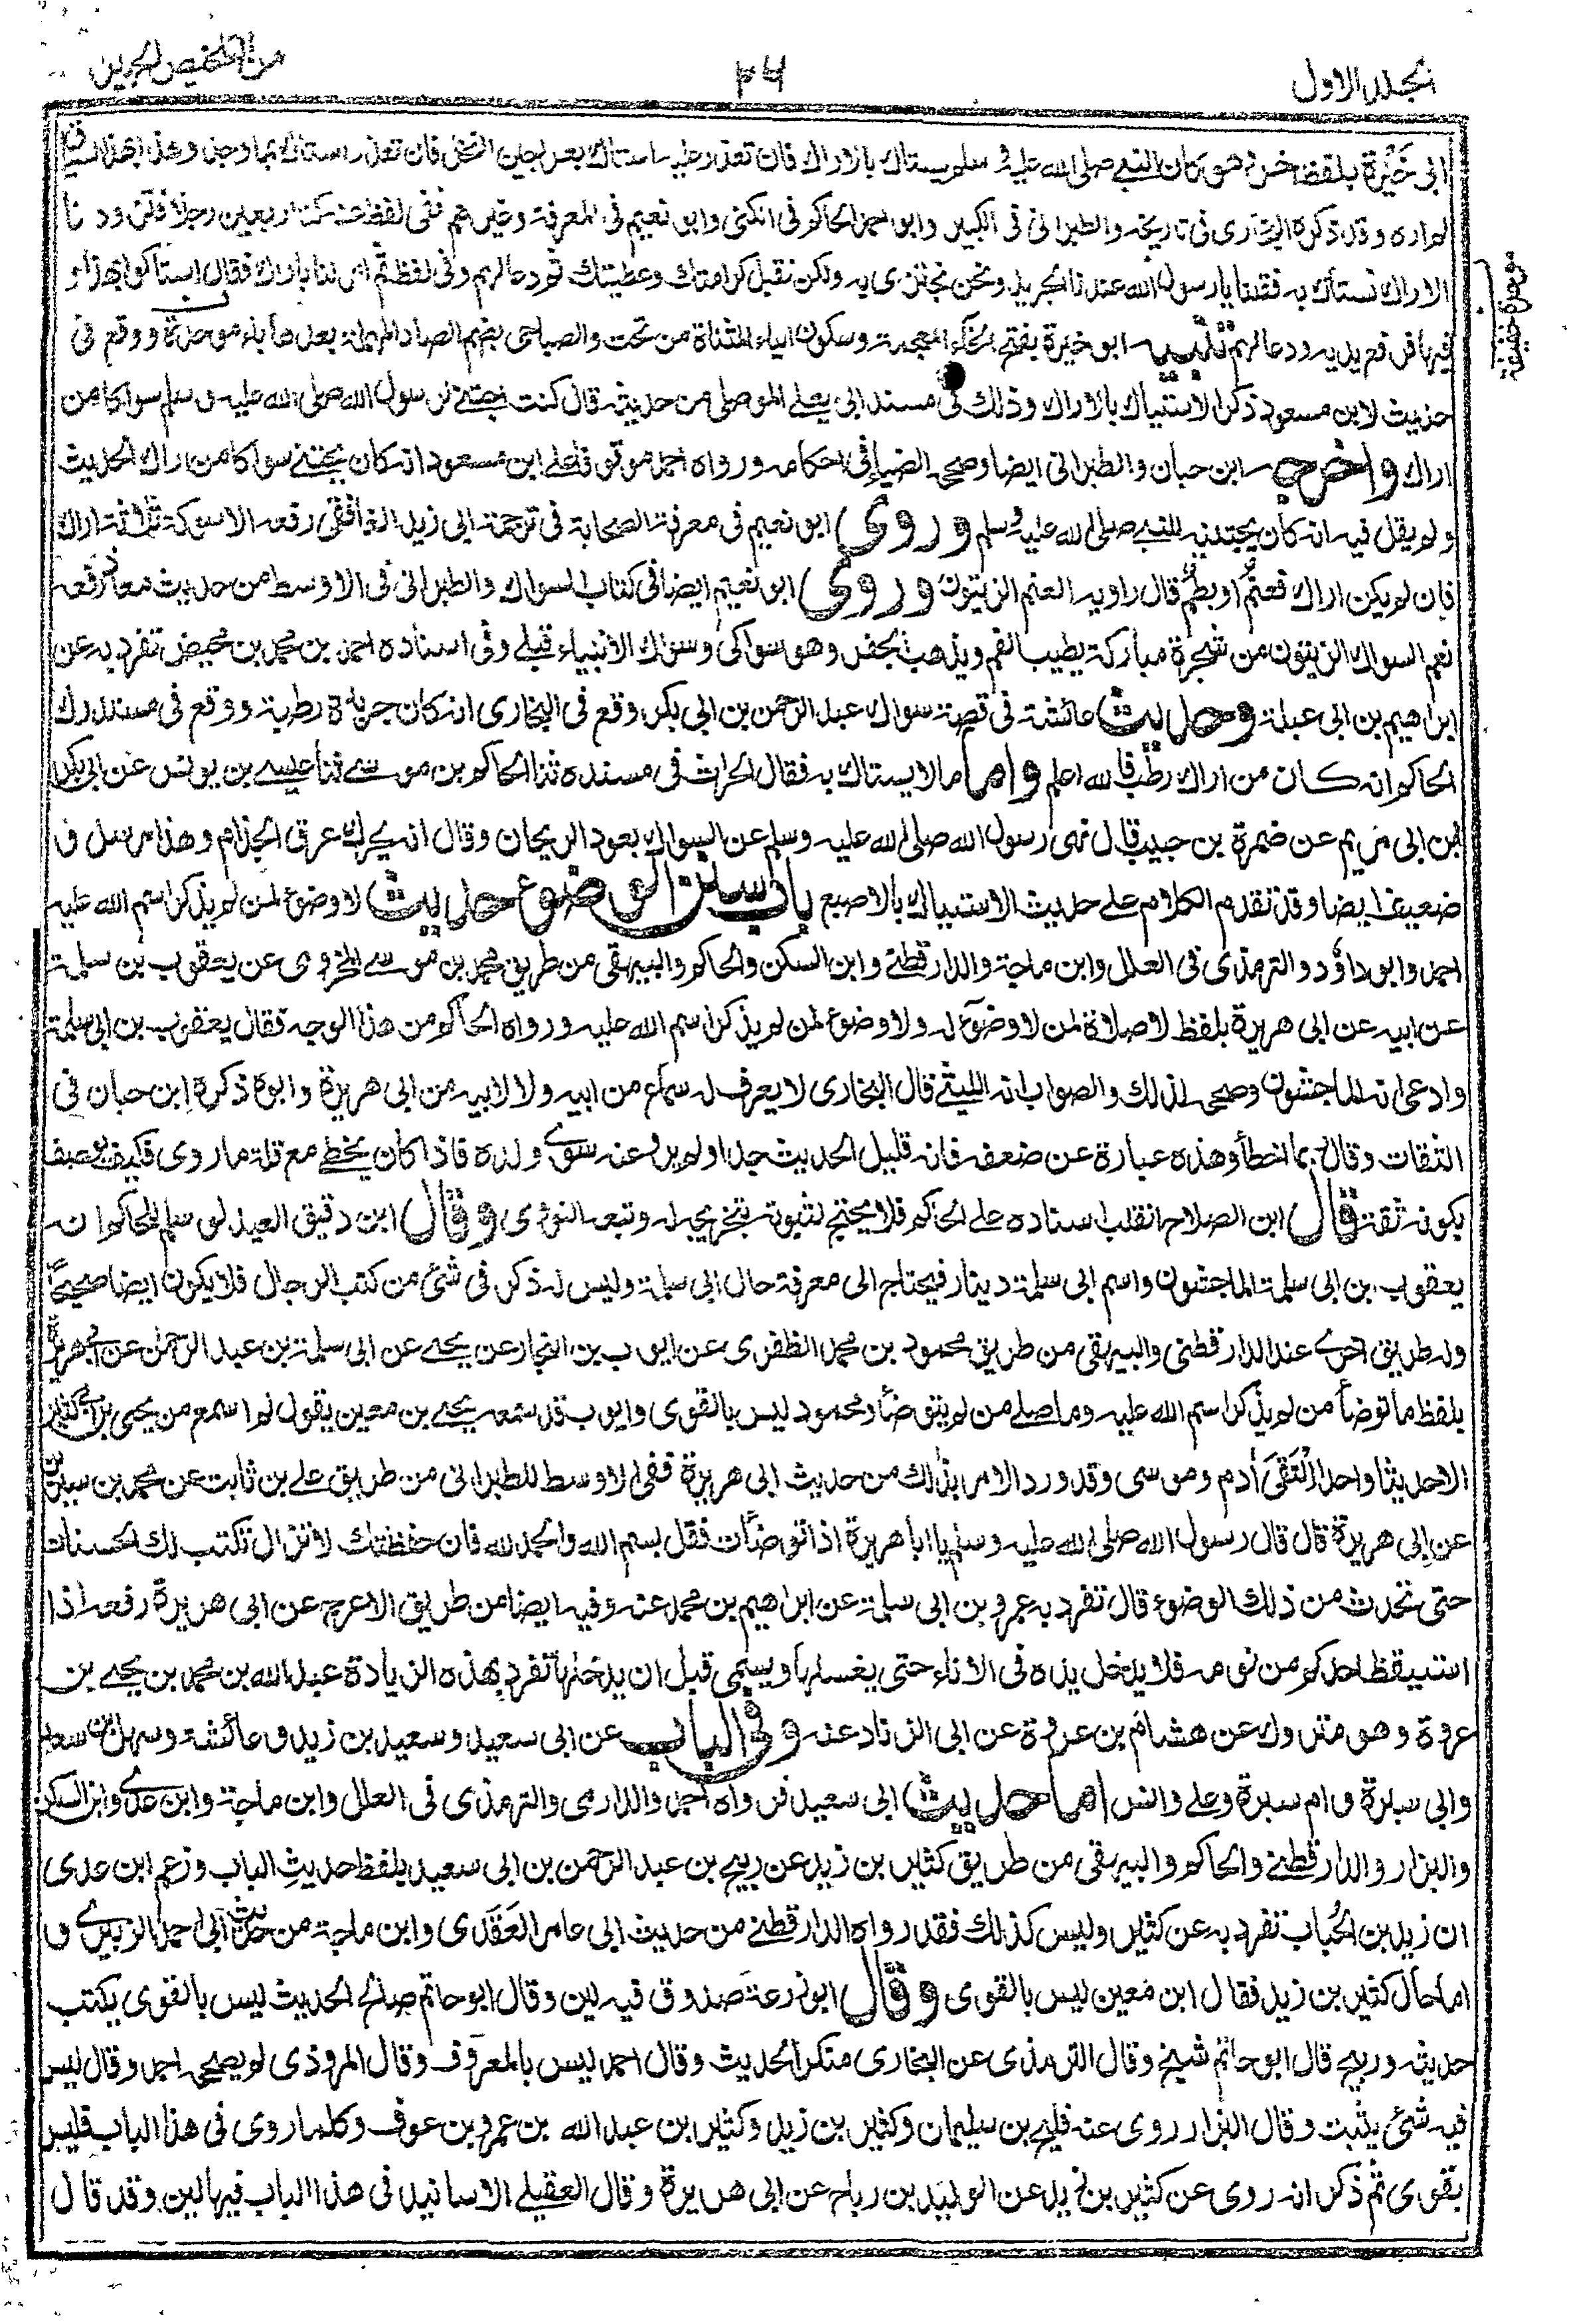 المجلد الاول
٢٦
من التلخيص الحبير
ابى خَيْرة بلفظ اخر وهو كان النبى صلى الله عليه وسلم يستاك بالاراك فان تعذر عليه استاك بعراجين النخل فان تعذر استاك بما وجد وهذا بهذا السياق
لم اره وقد ذكره البخارى فى تاريخه والطبرانى فى الكبير وابو احمد الحاكم فى الكنى وابو نعيم فى المعرفة وغيرهم ففى لفظ عنه كنا اربعين رجلا فتزودنا
الاراك نستاك به فقلنا يا رسول الله عندنا الجريد ونحن نجتزى به ولكن نقبل كرامتك وعطيتك ثم دعا لهم وفى لفظ ثم امر لنا باراك فقال استاكوا بهذا و
فيها فرفع يديه ودعا لهم تنبيه ابو خيرة بفتح الخاء المعجمة وسكون الياء المثناة من تحت والصباحى بضم الصاد المهملة بعدها باء موحدة ووقع فى
حديث لابن مسعود ذكر الاستياك بالاراك وذلك فى مسند ابى يعلى الموصلى من حديثه قال كنت اجتنى لرسول الله صلى الله عليه وسلم سواكا من
اراك واخرجه ابن حبان والطبرانى ايضا وصححه الضياء فى احكامه ورواه احمد موقوفا على ابن مسعود انه كان يجتنى سواكا من اراك الحديث
ولم يقل فيه انه كان يجتنيه للنبى صلى الله عليه وسلم وروى ابو نعيم فى معرفة الصحابة فى ترجمة ابى زيد الغافقى رفعه الاسوكة ثلاثة اراك
فان لم يكن اراك فعنم او بطم قال راويه العنم الزيتون وروى ابو نعيم ايضا فى كتاب السواك والطبرانى فى الاوسط من حديث معاذ رفعه
نعم السواك الزيتون من شجرة مباركة يطيب الفم ويذهب بالحفر وهو سواكى وسواك الانبياء قبلى وفى اسناده احمد بن محمد بن محيض تفرد به عن
ابراهيم بن ابى عبلة وحديث عائشة فى قصة سواك عبد الرحمن بن ابى بكر وقع فى البخارى انه كان جريدة رطبة ووقع فى مستدرك
الحاكم انه كان من اراك رطب فالله اعلم واما ما لا يستاك به فقال الحارث فى مسنده ثنا الحاكم بن موسى ثنا عيسى بن يونس عن ابى بكر
ابن ابى مريم عن ضمرة بن حبيب قال نهى رسول الله صلى الله عليه وسلم عن السواك بعود الريحان وقال انه يحرك عرق الجذام وهذا مرسل و
ضعيف ايضا وقد تقدم الكلام على حديث الاستياك بالاصبع باب سنن الوضوء حديث لا وضوء لمن لم يذكر اسم الله عليه
احمد وابو داؤد والترمذى فى العلل وابن ماجة والدارقطنى وابن السكن والحاكم والبيهقى من طريق محمد بن موسى المخزومى عن يعقوب بن سلمة
عن ابيه عن ابى هريرة بلفظ لا صلاة لمن لا وضوء له ولا وضوء لمن لم يذكر اسم الله عليه ورواه الحاكم من هذا الوجه فقال يعقوب بن ابى سلمة
وادعى انه الماجشون وصححه لذلك والصواب انه الليثى قال البخارى لا يعرف له سماع من ابيه ولا لابيه من ابى هريرة وابوه ذكره ابن حبان فى
الثقات وقال ربما اخطأ وهذه عبارة عن ضعفه فانه قليل الحديث جدا ولم يرو عنه سوى ولده فاذا كان يخطئ مع قلة ما روى فكيف يوصف
بكونه ثقة قال ابن الصلاح انقلب اسناده على الحاكم فلا يحتج لثبوته بتخريجه له وتبعه النووى وقال ابن دقيق العيد لو سلم للحاكم انه
يعقوب بن ابى سلمة الماجشون واسم ابى سلمة دينار فيحتاج الى معرفة حال ابى سلمة وليس له ذكر فى شئ من كتب الرجال فلا يكون ايضا صحيحًا
وله طريق اخرى عند الدارقطنى والبيهقى من طريق محمود بن محمد الظفرى عن ايوب بن النجار عن يحيى عن ابى سلمة بن عبد الرحمن عن ابى هريرة
بلفظ ما توضأ من لم يذكر اسم الله عليه وما صلى من لم يتوضأ ومحمود ليس بالقوى وايوب قد سمعه يحيى بن معين يقول لم اسمع من يحيى بن ابى كثير
الا حديثا واحدا الْتَقَى آدم وموسى وقد ورد الامر بذلك من حديث ابى هريرة ففى الاوسط للطبرانى من طريق على بن ثابت عن محمد بن سيرين
عن ابى هريرة قال قال رسول الله صلى الله عليه وسلم يا ابا هريرة اذا توضأت فقل بسم الله والحمد لله فان حفظتك لا تزال تكتب لك الحسنات
حتى تحدث من ذلك الوضوء قال تفرد به عمرو بن ابى سلمة عن ابراهيم بن محمد عنه وفيه ايضا من طريق الاعرج عن ابى هريرة رفعه اذا
استيقظ احدكم من نومه فلا يدخل يده فى الاناء حتى يغسلها ويسمى قبل ان يدخلها تفرد بهذه الزيادة عبد الله بن محمد بن يحيى بن
عروة وهو متروك عن هشام بن عروة عن ابى الزناد عنه وفى الباب عن ابى سعيد وسعيد بن زيد وعائشة وسهل بن سعد
وابى سبرة وام سبرة وعلى وانس اما حديث ابى سعيد فرواه احمد والدارمى والترمذى فى العلل وابن ماجة وابن عدى وابن السكن
والبزار والدارقطنى والحاكم والبيهقى من طريق كثير بن زيد عن ربيح بن عبد الرحمن بن ابى سعيد بلفظ حديث الباب وزعم ابن عدى
ان زيد بن الحُباب تفرد به عن كثير وليس كذلك فقد رواه الدارقطنى من حديث ابى عامر العَقَدى وابن ماجة من حديث ابى احمد الزبيرى و
اما حال كثير بن زيد فقال ابن معين ليس بالقوى وقال ابو زرعة صدوق فيه لين وقال ابو حاتم صالح الحديث ليس بالقوى يكتب
حديثه وربيح قال ابو حاتم شيخ وقال الترمذى عن البخارى منكر الحديث وقال احمد ليس بالمعروف وقال المروذى لم يصححه احمد وقال ليس
فيه شئ يثبت وقال البزار روى عنه فليح بن سليمان وكثير بن زيد وكثير بن عبد الله بن عمرو بن عوف وكلما روى فى هذا الباب فليس
بقوى ثم ذكر انه روى عن كثير بن زيد عن الوليد بن رباح عن ابى هريرة وقال العقيلى الاسانيد فى هذا الباب فيها لين وقد قال